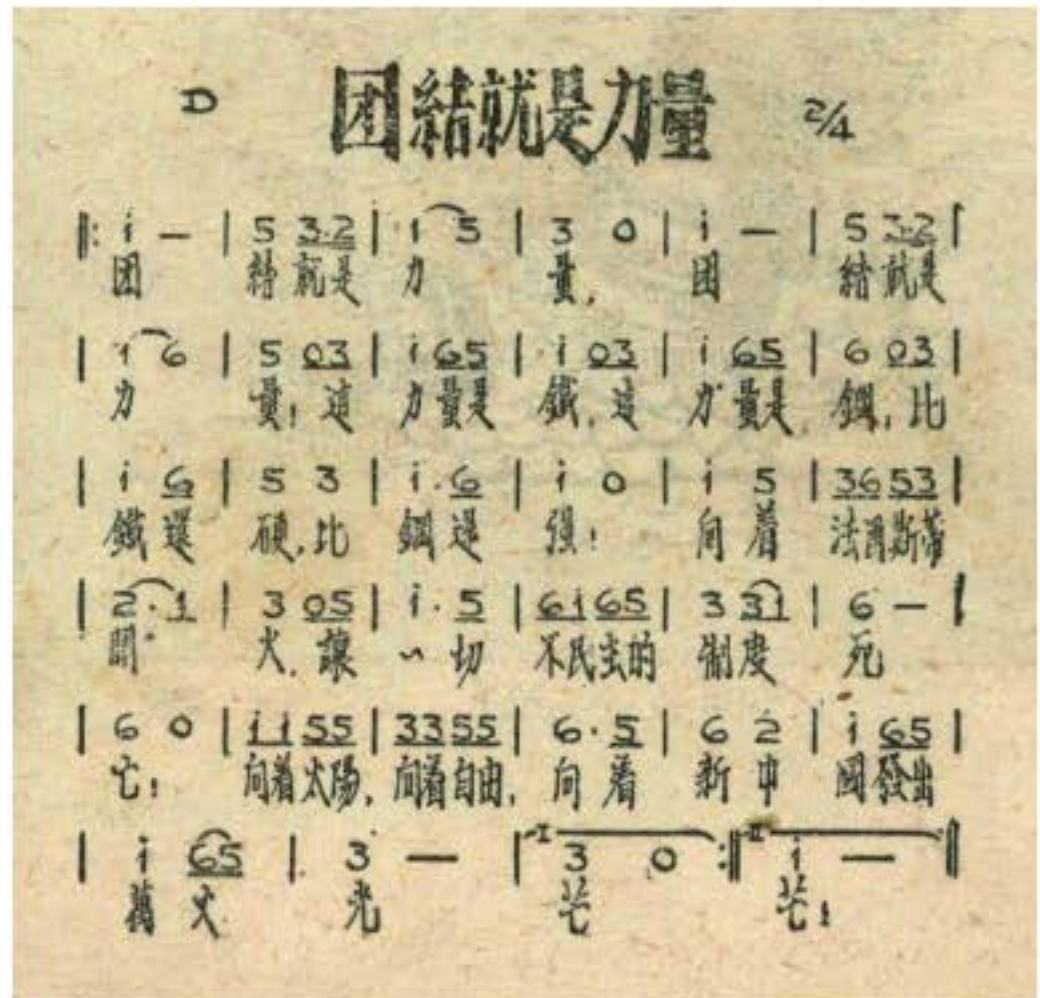 D 团結就是力量 2/4
‖: i — | 5 3·2 | 1 5 | 3 0 | i — | 5 3·2 |
团 結就是 力 量, 团 結就是
| 1 6 | 5 03 | i 65 | i 03 | i 65 | 6 03 |
力 量! 這 力量是 鐵, 這 力量是 鋼, 比
| i 6 | 5 3 | i·6 | i 0 | i 5 | 36 53 |
鐵還 硬, 比 鋼還 强! 向着 法西斯蒂
| 2·1 | 3 05 | i·5 | 61 65 | 3 31 | 6 — |
開 火, 讓 一切 不民主的 制度 死
| 6 0 | ii 55 | 33 55 | 6·5 | 6 2 | i 65 |
亡! 向着太陽, 向着自由, 向着 新中 國發出
| i 65 | 3 — | I 3 0 :‖ II i — ‖
萬丈 光 芒 芒!